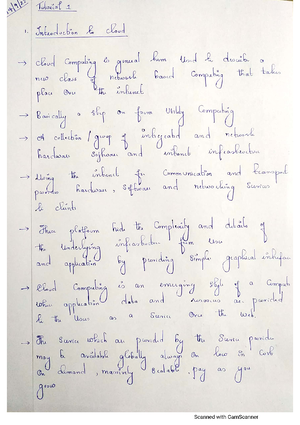 Tutorial 1
1. Introduction to cloud
→ Cloud Computing is general term used to describe a
new class of network based Computing that takes
place over the internet
→ Basically a step on from Utility Computing
→ A collection / group of integrated and network
hardware software and internet infrastructure
→ Using the internet for Communication and transport
provides hardware, software and networking services
to clients
→ These platform hide the Complexity and details of
the underlying infrastructure from users
and application by providing simple graphical interface
→ Cloud Computing is an emerging style of a Computing
where application, data and resources are provided
to the user as a service over the web
→ The services which are provided by the service provider
may be available globally always on low in cost
on demand, scalable, pay as you
grow
Scanned with CamScanner